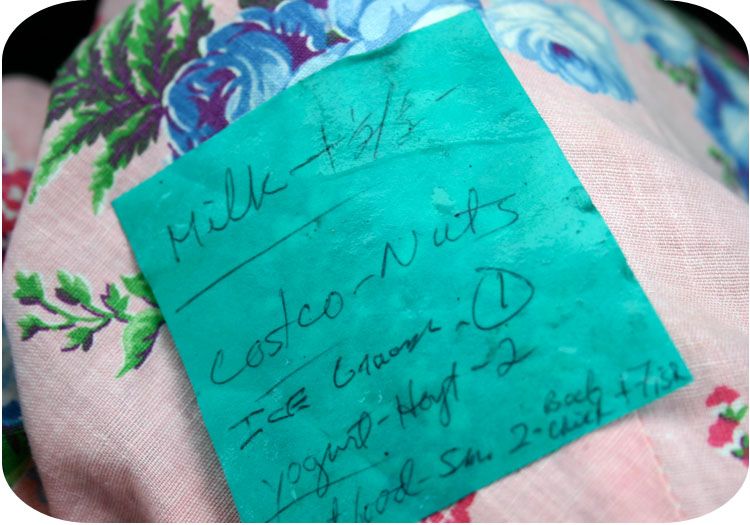 Milk - + ½/½ -
Costco - Nuts
ICE Cream - 1
Yogurt - Hoyt - 2
food - Sm. 2 - Beef + Fish